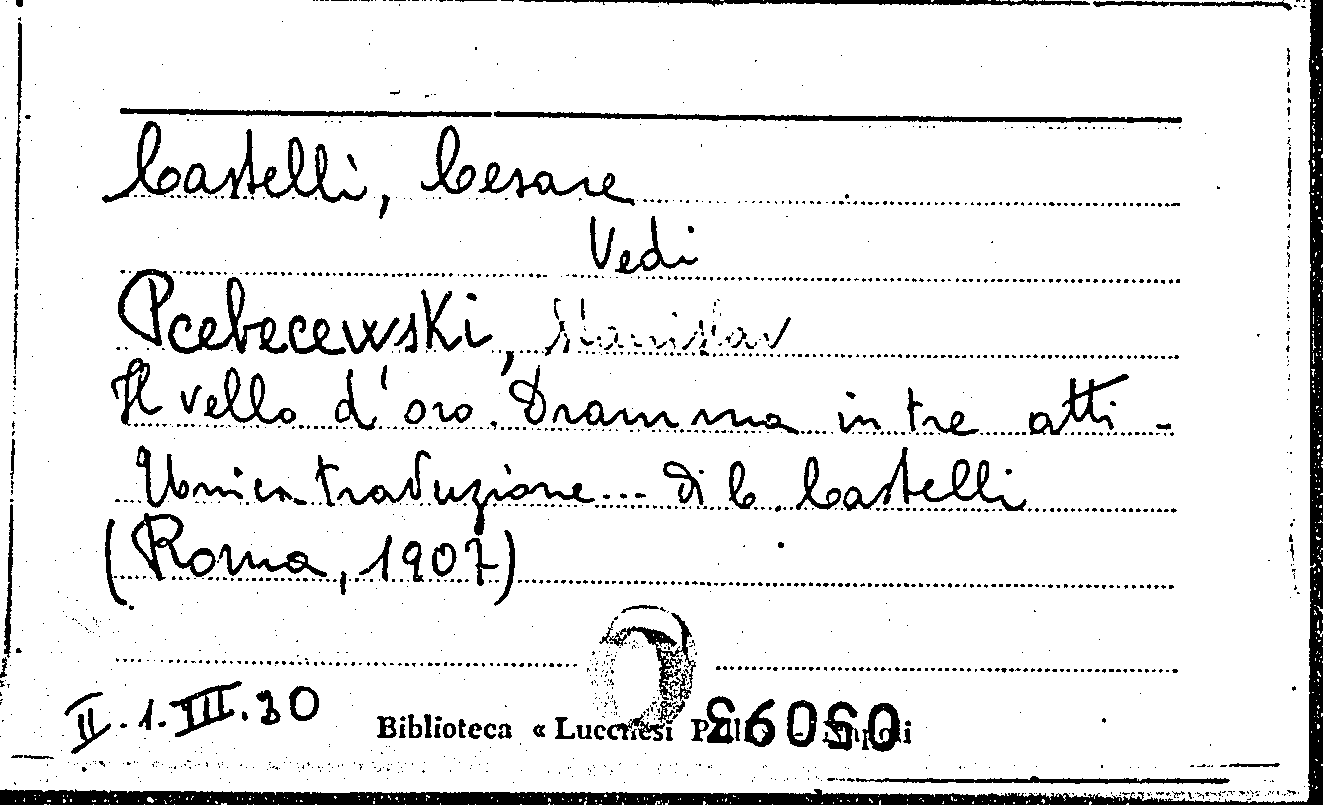 Castelli, Cesare
Vedi
Pcebecewski, Stanislav
Il vello d'oro. Dramma in tre atti -
Unica traduzione... di C. Castelli
(Roma, 1907)
II.1.III.30
Biblioteca « Lucchesi